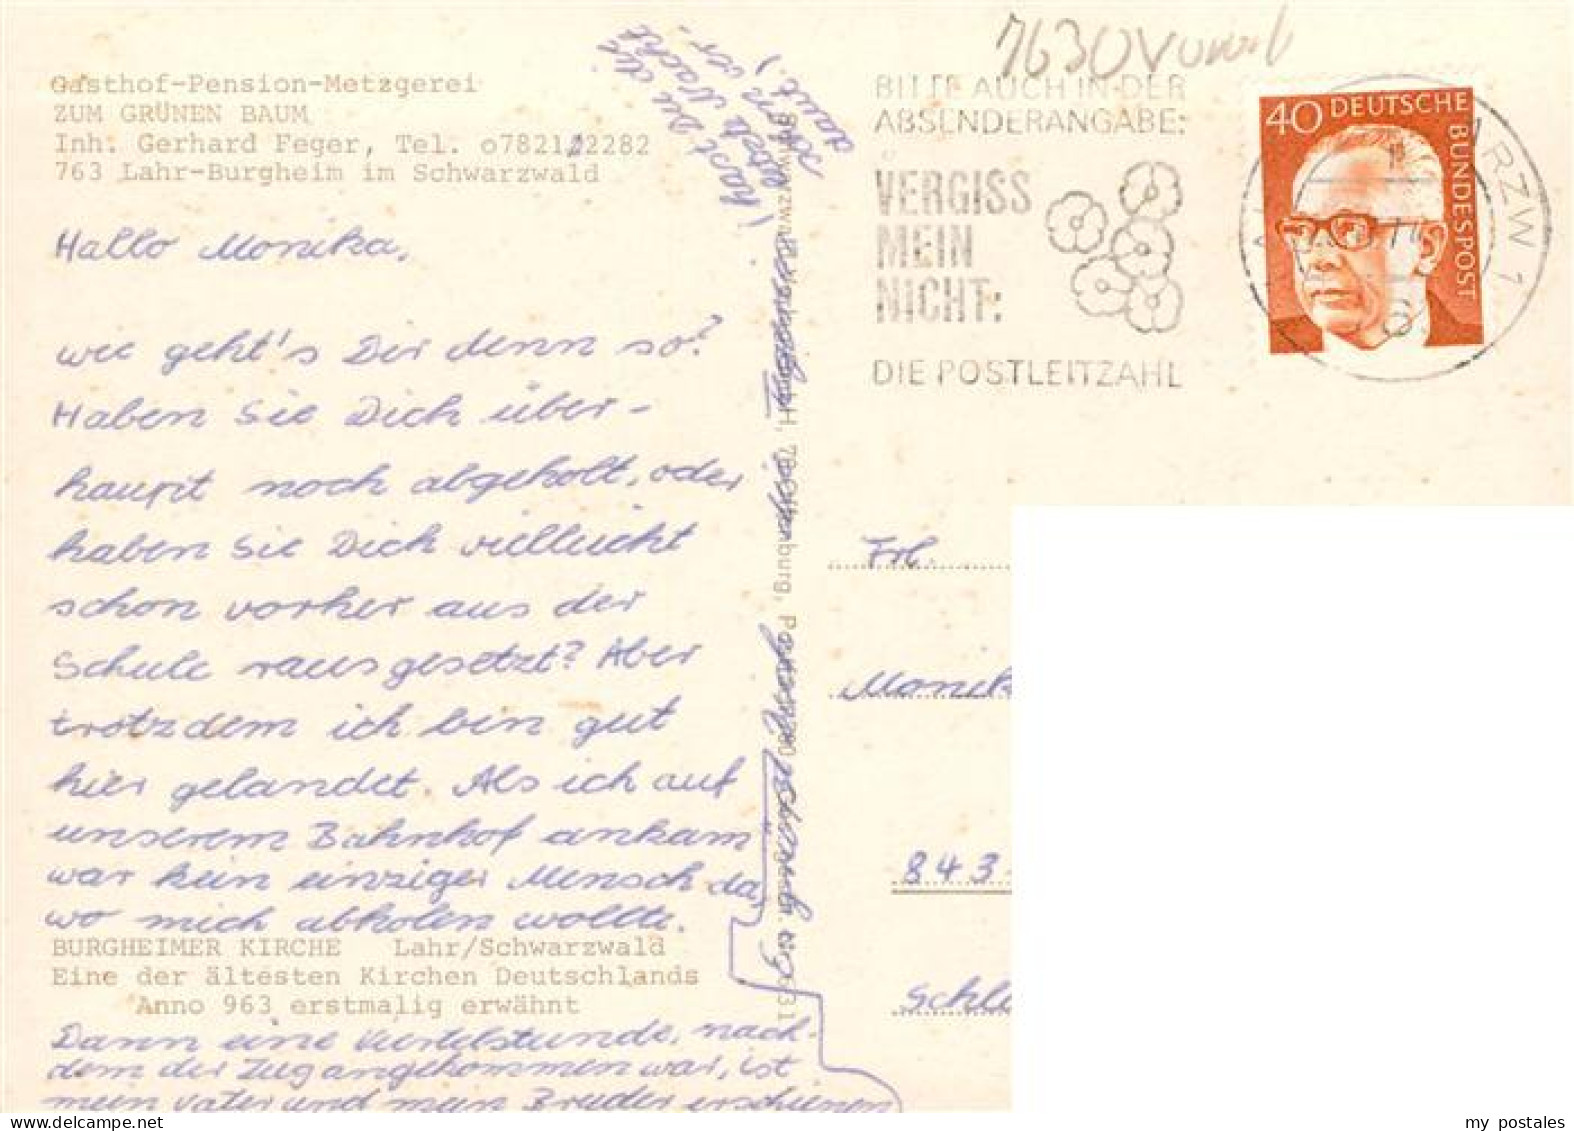 Gasthof-Pension-Metzgerei
ZUM GRÜNEN BAUM
Inh. Gerhard Feger, Tel. o7821/22282
763 Lahr-Burgheim im Schwarzwald
Hallo Monika,
wie geht's Dir denn so?
Haben Sie Dich über-
haupt noch abgeholt, oder
haben Sie Dich vielleicht
schon vorher aus der
Schule rausgesetzt? Aber
trotzdem ich bin gut
hier gelandet. Als ich auf
unserem Bahnhof ankam
war kein einziger Mensch da,
wo mich abholen wollte.
BURGHEIMER KIRCHE Lahr/Schwarzwald
Eine der ältesten Kirchen Deutschlands
Anno 963 erstmalig erwähnt
Dann eine Viertelstunde, nach-
dem der Zug angekommen war, ist
mein Vater und mein Bruder erschienen
(hast Du die
Nacht
ver-
daut.)
7630
BITTE AUCH IN DER
ABSENDERANGABE:
VERGISS
MEIN
NICHT:
DIE POSTLEITZAHL
40 DEUTSCHE
BUNDESPOST
RZW 1
Frl.
Monik
843
Schl
my postales